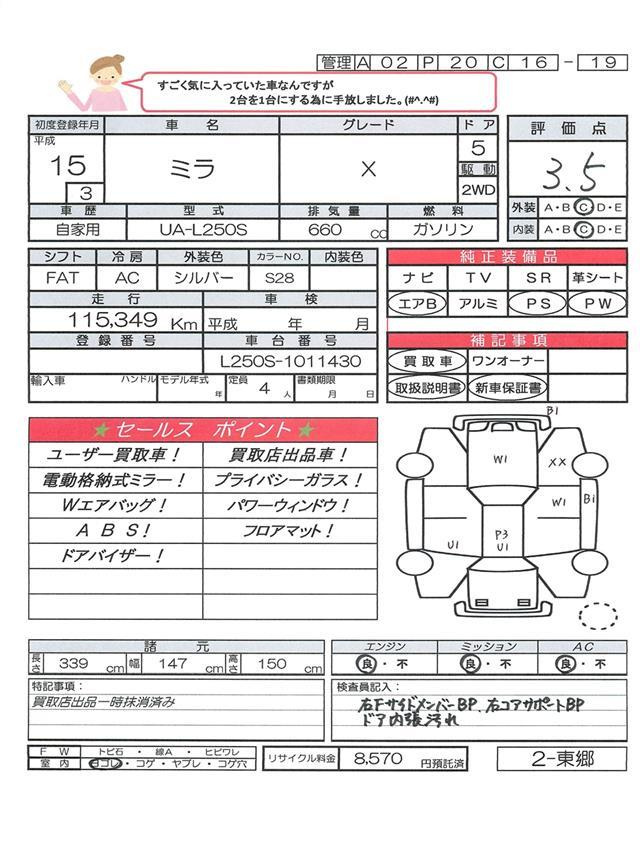 管理 A 02 P 20 C 16 - 19
すごく気に入っていた車なんですが
2台を1台にする為に手放しました。(#^.^#)
初度登録年月 車名 グレード ドア 評価点
平成 15 3 ミラ X 5 3.5
駆動 2WD
車歴 型式 排気量 燃料 外装 A・B・C・D・E
自家用 UA-L250S 660 cc ガソリン 内装 A・B・C・D・E
シフト 冷房 外装色 カラーNO. 内装色 純正装備品
FAT AC シルバー S28 ナビ TV SR 革シート
走行 車検 エアB アルミ PS PW
115,349 Km 平成 年 月
登録番号 車台番号 補記事項
L250S-1011430 買取車 ワンオーナー
輸入車 ハンドル モデル年式 年 定員 4 人 書類期限 月 日 取扱説明書 新車保証書
★セールス ポイント★
ユーザー買取車! 買取店出品車!
電動格納式ミラー! プライバシーガラス!
Wエアバッグ! パワーウィンドウ!
ABS! フロアマット!
ドアバイザー!
B1
W1 XX
W1 B1
U1 P3
U1
諸元 エンジン ミッション AC
長さ 339 cm 幅 147 cm 高さ 150 cm 良・不 良・不 良・不
特記事項:
買取店出品一時抹消済み
検査員記入:
右FサイドメンバーBP、右コアサポートBP
ドア内張汚れ
FW トビ石 ・ 線A ・ ヒビワレ
室内 ヨゴレ・コゲ・ヤブレ・コゲ穴
リサイクル料金 8,570 円預託済 2-東郷